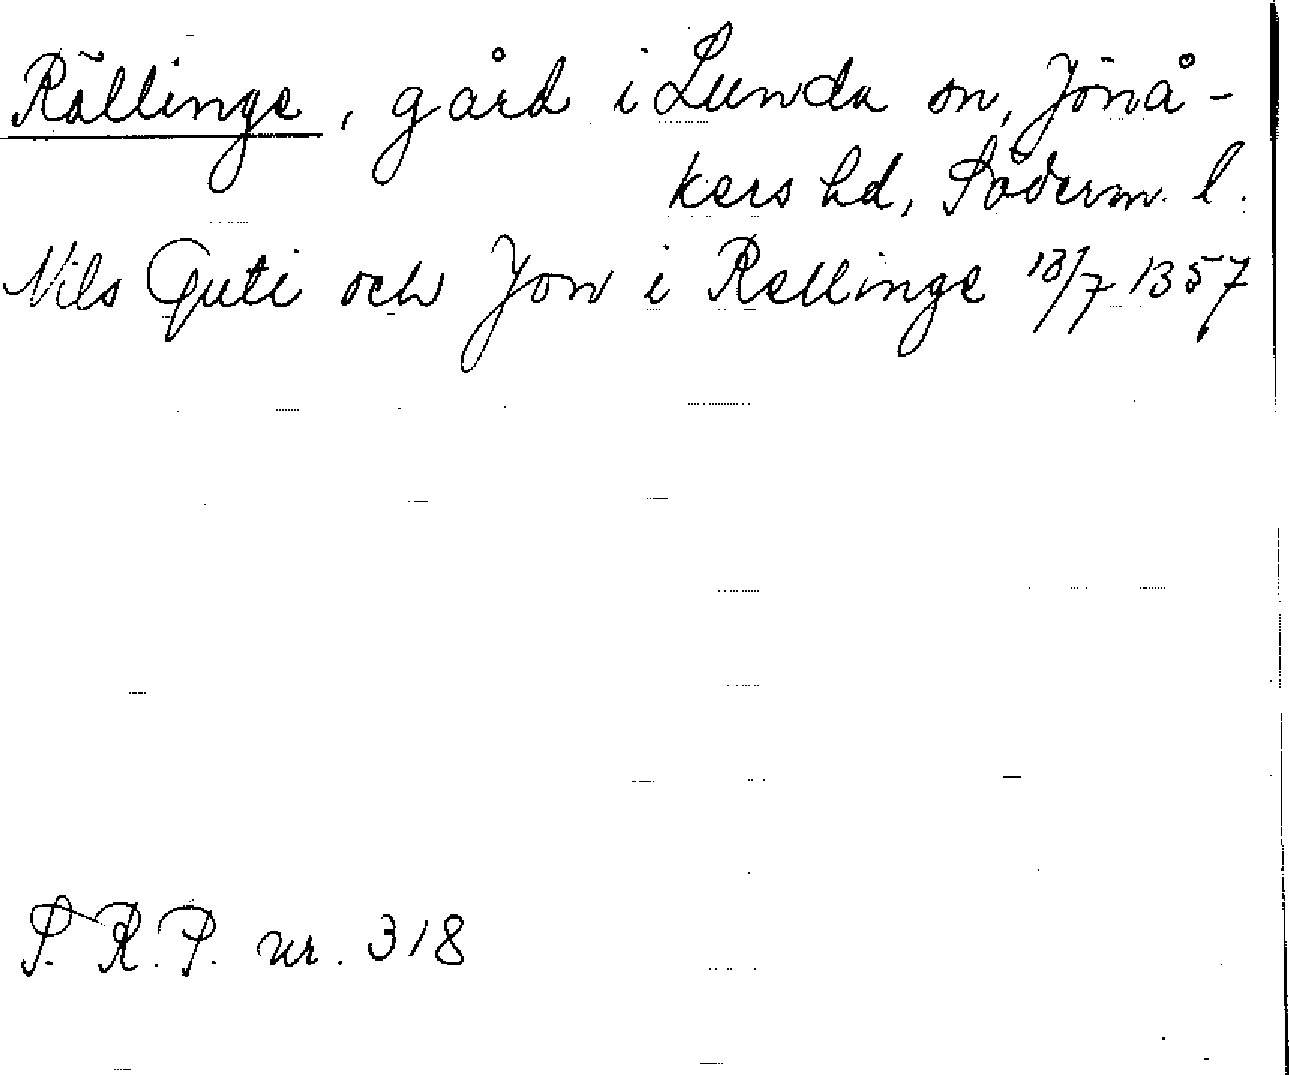 Rällinge, gård i Lunda sn, Jönå-
kers hd, Söderm. l.
Nils Guti och Jon i Rellinge 13/7 1357
S. R. P. nr. 318